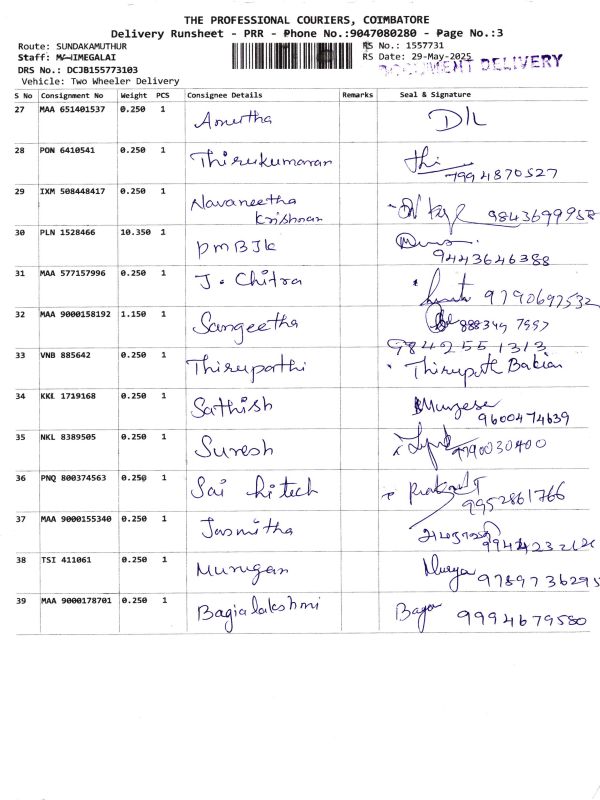 THE PROFESSIONAL COURIERS, COIMBATORE
Delivery Runsheet - PRR - Phone No.:9047080280 - Page No.:3
Route: SUNDAKAMUTHUR RS No.: 1557731
Staff: RS Date: 29-May-2025
DRS No.: DCJB155773103 DOCUMENT DELIVERY
Vehicle: Two Wheeler Delivery
S No Consignment No Weight PCS Consignee Details Remarks Seal & Signature
27 MAA 651401537 0.250 1 Amrtha D/L
28 PON 6410541 0.250 1 Thirukumaran Thi
7994870527
29 IXM 508448417 0.250 1 Navaneetha
Krishnan 9843699958
30 PLN 1528466 10.350 1 PMBJK
9443646388
31 MAA 577157996 0.250 1 J. Chitra 9790697532
32 MAA 9000158192 1.150 1 Sangeetha
9842551313
33 VNB 885642 0.250 1 Thirupathi
34 KKL 1719168 0.250 1 Sathish
9600474639
35 NKL 8389505 0.250 1 Suresh 9790030400
36 PNQ 800374563 0.250 1 Sai hitech Prakash T
9952861766
37 MAA 9000155340 0.250 1 Jasmitha
38 TSI 411061 0.250 1 Murugan 9789736295
39 MAA 9000178701 0.250 1 Bagialakshmi Bagya 9994679580